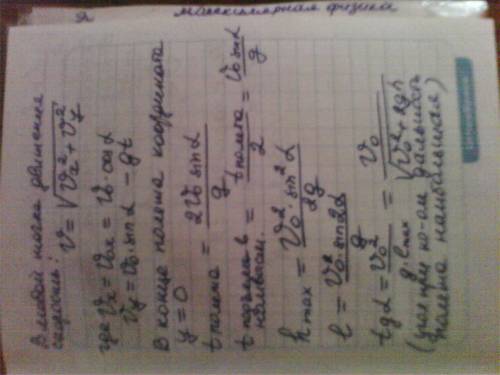 Молекулярная физика
В любой точке движения
скорость:
V = √(Vx² + Vy²)
где Vx = V₀x = V₀·cos α
Vy = V₀ sin α − gt
В конце полёта координата
y = 0
t полёта = 2V₀ sin α / g
t подъема в наивысш. = t полёта / 2 = V₀ sin α / g
h max = V₀²·sin² α / 2g
l = V₀²·sin 2α / g
tg α = V₀² / g·l max = V₀ / √(V₀² + 2gh)
(угол при ко-ом дальность
полёта наибольшая)